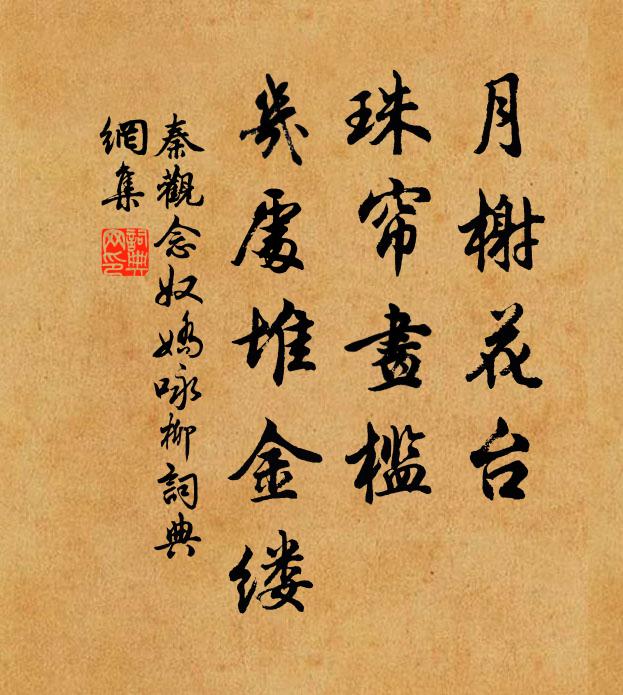 月榭花台
珠帘畫槛
幾處堆金缕
秦觀念奴嬌咏柳詞典
網集
詞典
网印